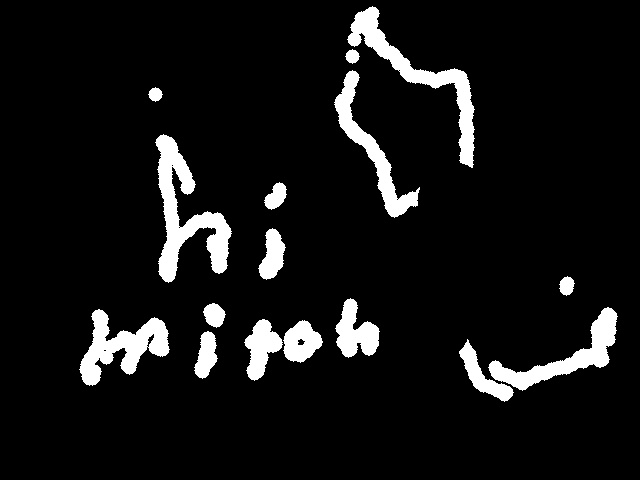 hi
mitch